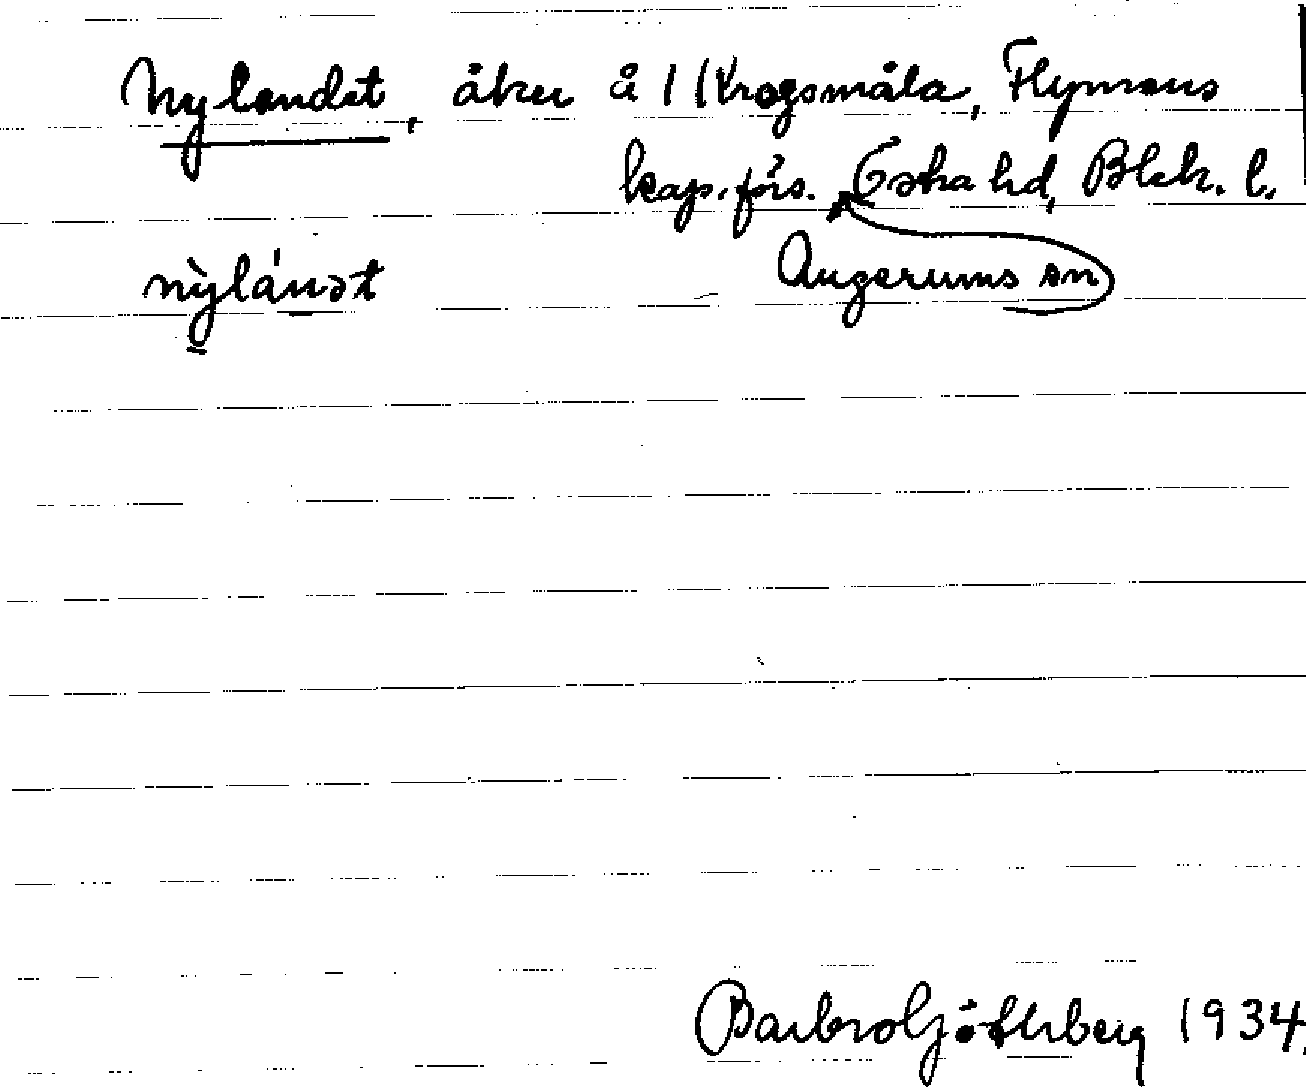 Nylandet, åker å 1 Krogsmåla, Flymens
kap.förs. Östra hd, Blek. l.
nỳlánət Augerums sn
Barbro Götherberg 1934.